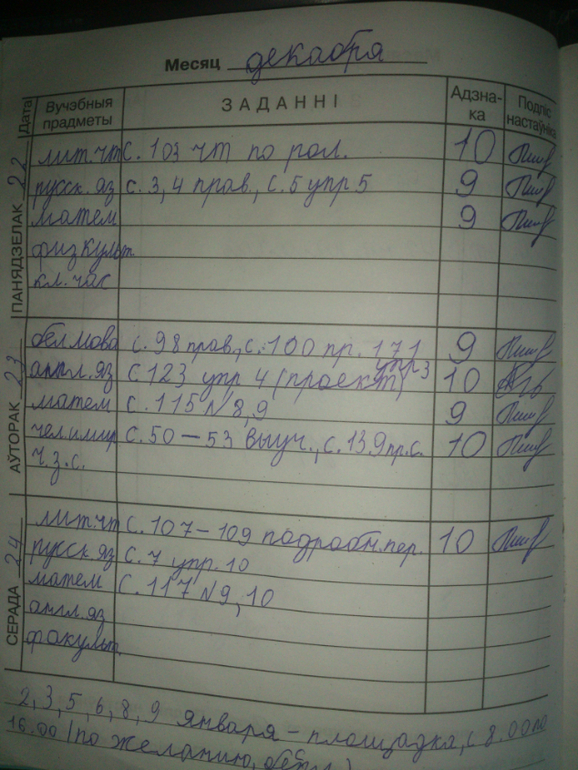 Месяц декабря
Дата Вучэбныя прадметы ЗАДАННІ Адзнака Подпіс настаўніка
ПАНЯДЗЕЛАК 22
лит.чт с. 103 чт по рол. 10
русск.яз с. 3, 4 прав, с. 5 упр 5 9
матем 9
физкульт
кл. час
АЎТОРАК 23
бел.мова с. 98 прав., с. 100 пр. 171 9
англ.яз с 123 упр 4 (проект) упр 3 10
матем с. 115 № 8, 9 9
чел.и мир с. 50 – 53 выуч., с. 139 пр.с. 10
ч.з.с.
СЕРАДА 24
лит.чт с. 107 – 109 подробн. пер. 10
русск.яз с. 7 упр. 10
матем с. 117 № 9, 10
англ.яз
факульт
2, 3, 5, 6, 8, 9 января – площадка, с 8.00 по
16.00 (по желанию,